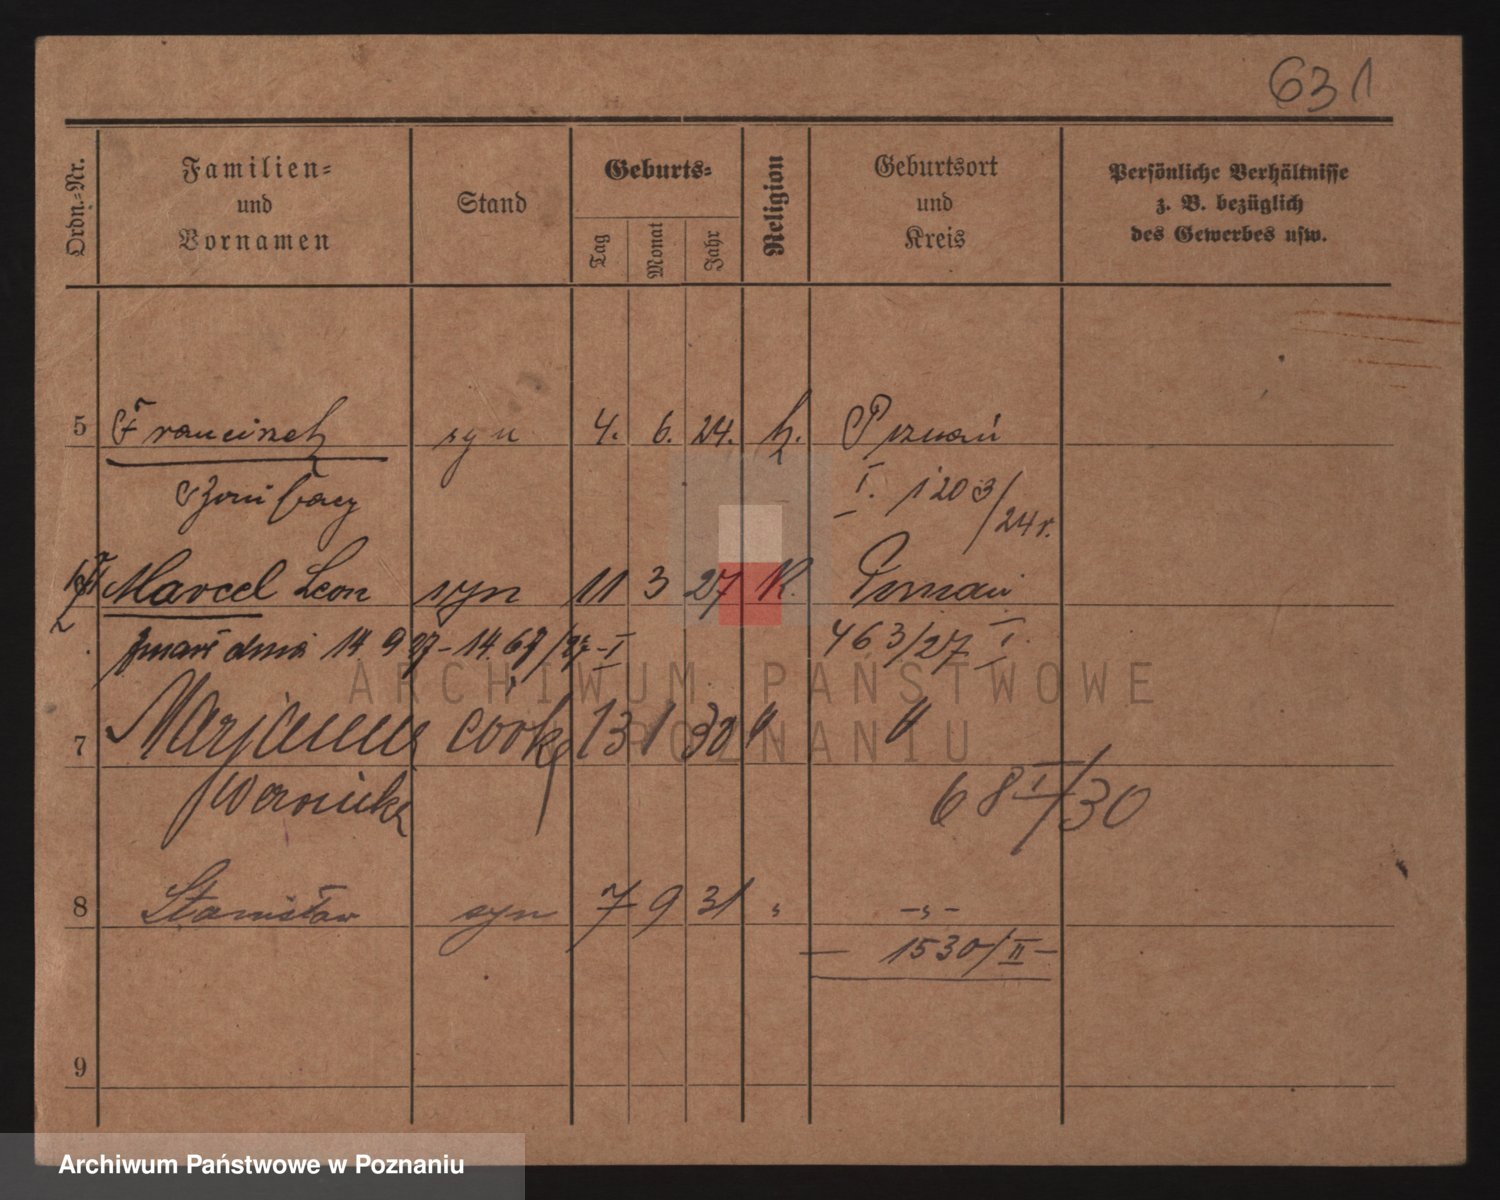 631
Ordn.-Nr.
Familien-
und
Vornamen
Stand
Geburts-
Tag
Monat
Jahr
Religion
Geburtsort
und
Kreis
Persönliche Verhältnisse
z. B. bezüglich
des Gewerbes usw.
5 Franciszek syn 4. 6. 24. k. Poznań
Bonifacy I. 1203/24r.
Marcel Leon syn 11 3 27 K. Poznań
zmarł dnia 14 9 27 - 1467/27 - I 463/27 I.
7 Marjanna córka 13 1 30 " "
Weronika 68 I/30
8 Stanisław syn 7 9 31 " - " -
— 1530/II —
9
ARCHIWUM PAŃSTWOWE
W POZNANIU
Archiwum Państwowe w Poznaniu